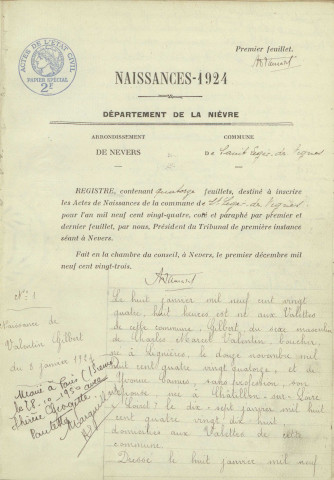 Premier feuillet.
ACTES DE L'ETAT CIVIL
PAPIER SPECIAL
2F
NAISSANCES-1924
DÉPARTEMENT DE LA NIÈVRE
ARRONDISSEMENT
DE NEVERS
COMMUNE
DE
REGISTRE, contenant quatorze feuillets, destiné à inscrire
les Actes de Naissances de la commune de
pour l'an mil neuf cent vingt-quatre, coté et paraphé par premier et
dernier feuillet, par nous, Président du Tribunal de première instance
séant à Nevers.
Fait en la chambre du conseil, à Nevers, le premier décembre mil
neuf cent vingt-trois.
N° 1
Naissance de
Valentin Gilbert
du 8 janvier 1924
Marié à Paris
le 28-10-1950 avec
Le huit janvier mil neuf cent vingt
quatre, huit heures est né aux Valettes
de cette commune, Gilbert, du sexe masculin
de Charles Marcel Valentin, boucher,
né à Lignières, le douze novembre mil
huit cent quatre vingt quatorze, et de
Yvonne Camus, sans profession, son
épouse, née à Châtillon-sur-Loire
(Loiret) le dix-sept janvier mil huit
cent quatre vingt dix huit,
domiciliés aux Valettes de cette
commune
Dressé le huit janvier mil neuf